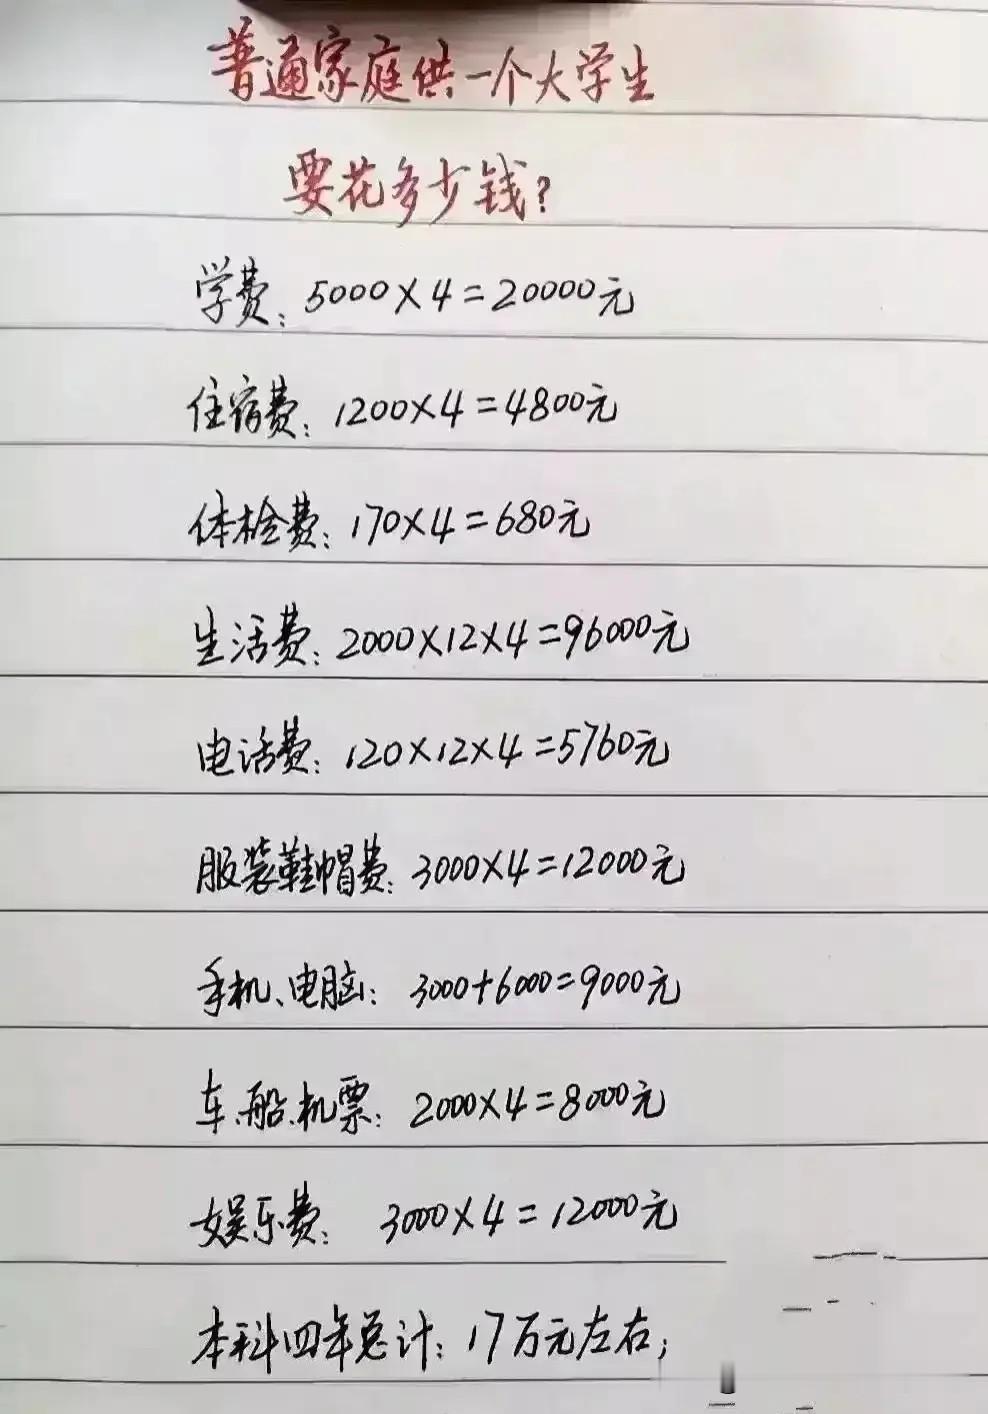 普通家庭供一个大学生
要花多少钱?
学费: 5000×4=20000元
住宿费: 1200×4=4800元
体检费: 170×4=680元
生活费: 2000×12×4=96000元
电话费: 120×12×4=5760元
服装鞋帽费: 3000×4=12000元
手机、电脑: 3000+6000=9000元
车.船.机票: 2000×4=8000元
娱乐费: 3000×4=12000元
本科四年总计: 17万元左右;